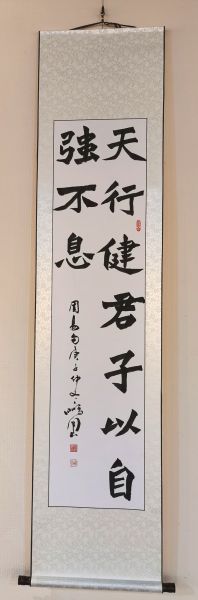 天行健君子以自
強不息
周易句庚子仲冬